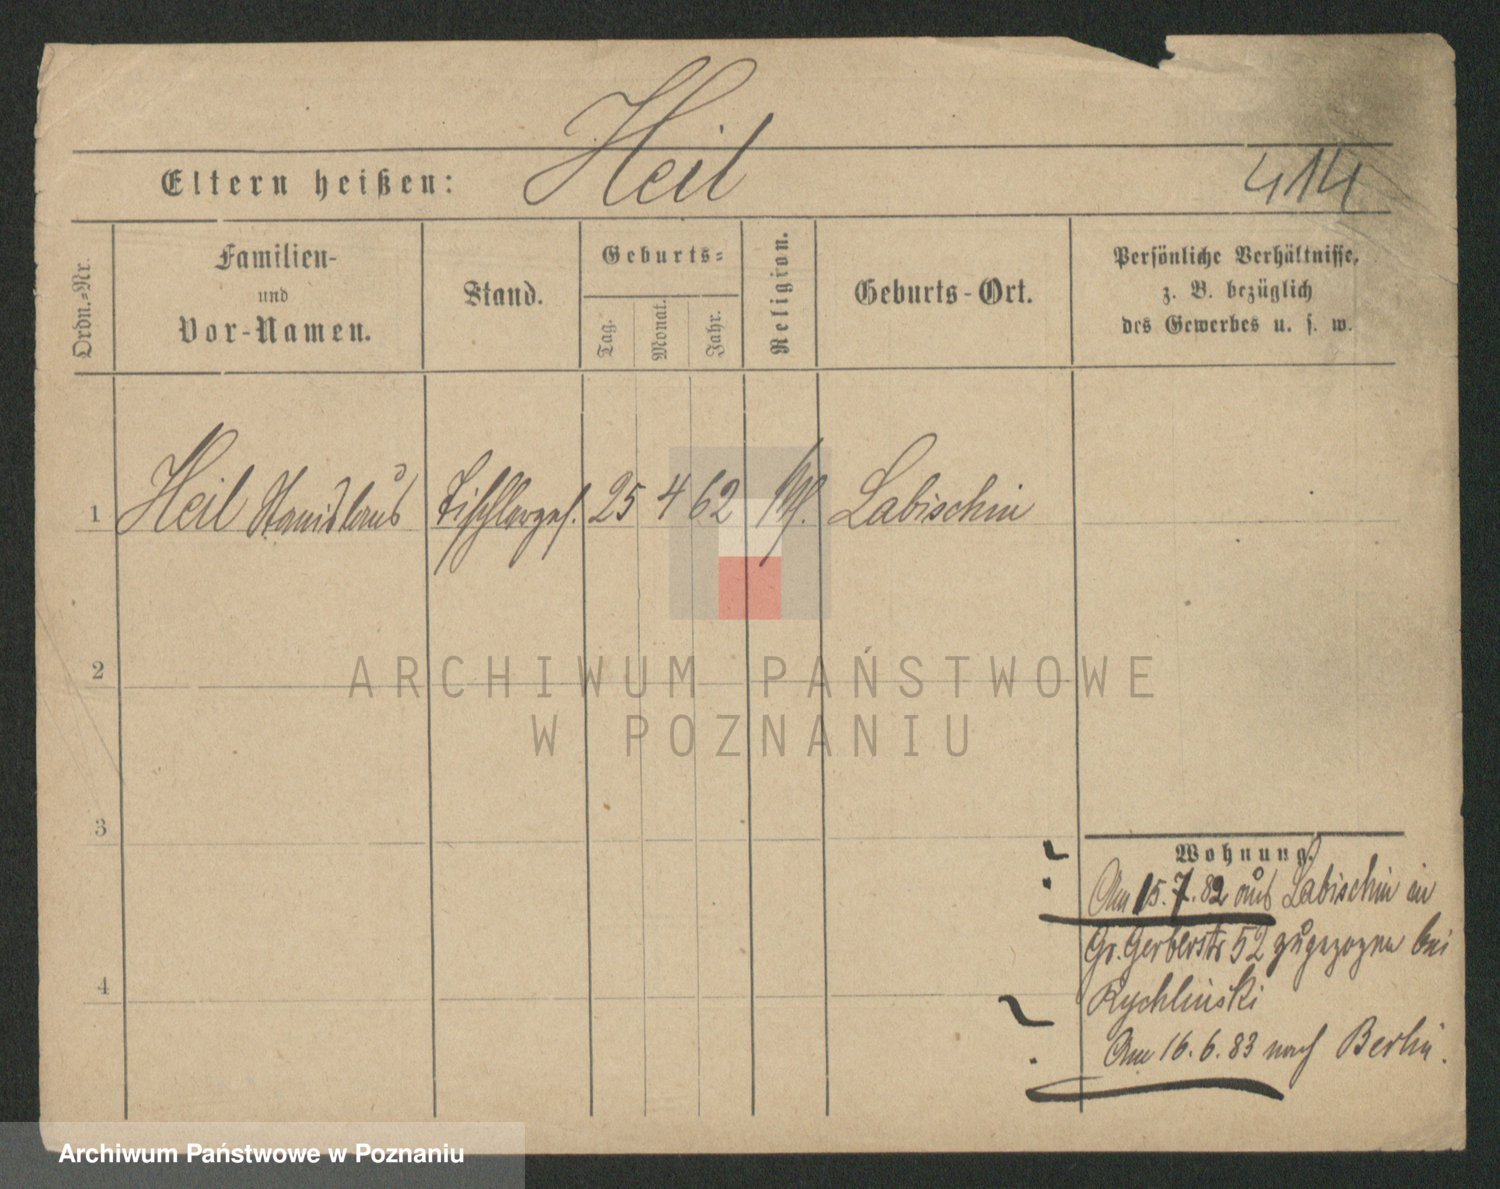 Heil
414
Eltern heißen:
Ordn.-Nr.
Familien-
und
Vor-Namen.
Stand.
Geburts-
Tag.
Monat.
Jahr.
Religion.
Geburts-Ort.
Persönliche Verhältnisse,
z. B. bezüglich
des Gewerbes u. s. w.
1 Heil Stanislaus Tischlerges. 25 4 62 Labischin
2
3
4
Wohnung.
Am 15.7.82 aus Labischin in
Gr. Gerberstr 52 zugezogen bei
Rychlinski
Am 16.6.83 nach Berlin.
ARCHIWUM PAŃSTWOWE
W POZNANIU
Archiwum Państwowe w Poznaniu